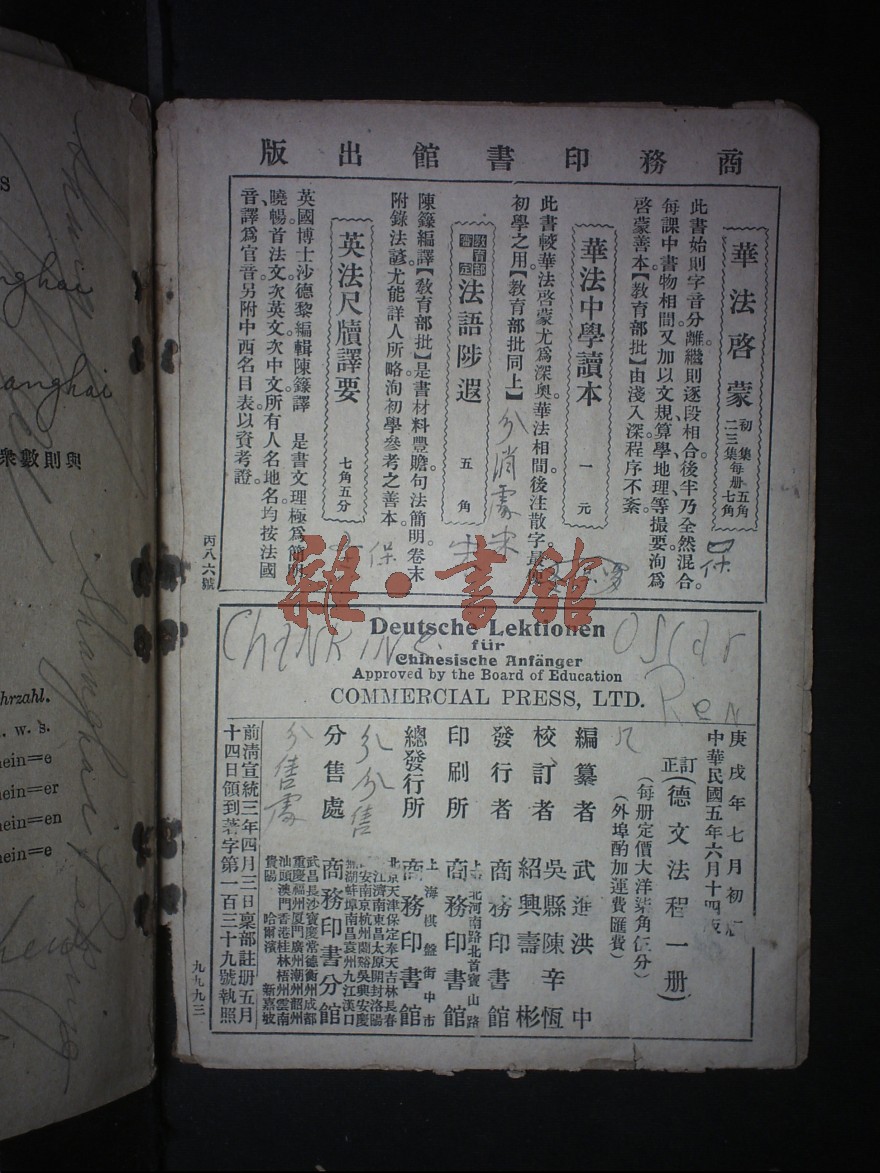 商務印書館出版
華法啓蒙 初集五角 二三集每册七角
此書始則字音分離。繼則逐段相合。後半乃全然混合。
每課中書物相間。又加以文規、算學、地理等撮要。洵爲
啓蒙善本。【教育部批】由淺入深程序不紊
華法中學讀本 一元
此書較華法啓蒙尤爲深奧。華法相間。後注散字。最
初學之用【教育部批同上】
教育部審定 法語陟遐 五角
陳籙編譯【教育部批】是書材料豐贍。句法簡明。卷末
附錄法諺。尤能詳人所略。洵初學參考之善本。
英法尺牘譯要 七角五分
英國博士沙德黎編輯陳籙譯 是書文理極爲簡明
曉暢。首法文。次英文。次中文。所有人名地名。均按法國
音譯爲官音。另附中西名目表以資考證。
丙八六號
分消處
保
Deutsche Lektionen
für
Chinesische Anfänger
Approved by the Board of Education
COMMERCIAL PRESS, LTD.
Oscar
Ren
庚戌年七月初版
中華民國五年六月十四版
訂正(德文法程一册)
(每册定價大洋柒角伍分)
(外埠酌加運費匯費)
編纂者 武進洪中
校訂者 吳縣陳辛恆
紹興壽彬
發行者 商務印書館
上海北河南路北首寶山路
印刷所 商務印書館
上海棋盤街中市
總發行所 商務印書館
北京天津保定奉天吉林長春
濟南東昌太原開封洛陽
西安南京杭州蘭谿吳興安慶
蕪湖蚌埠南昌袁州九江漢口
分售處 商務印書分館
武昌長沙寶慶常德衡州成都
重慶福州厦門廣州潮州韶州
汕頭澳門香港桂林梧州雲南
貴陽 哈爾濱 新嘉坡
分售
分售處
前清宣統三年四月三日稟部註册五月
十四日領到著字第一百三十九號執照
九九九三
雜·書館
與則數衆
hrzahl.
. w. s.
hein=e
ein=er
ein=en
hein=e
Shanghai